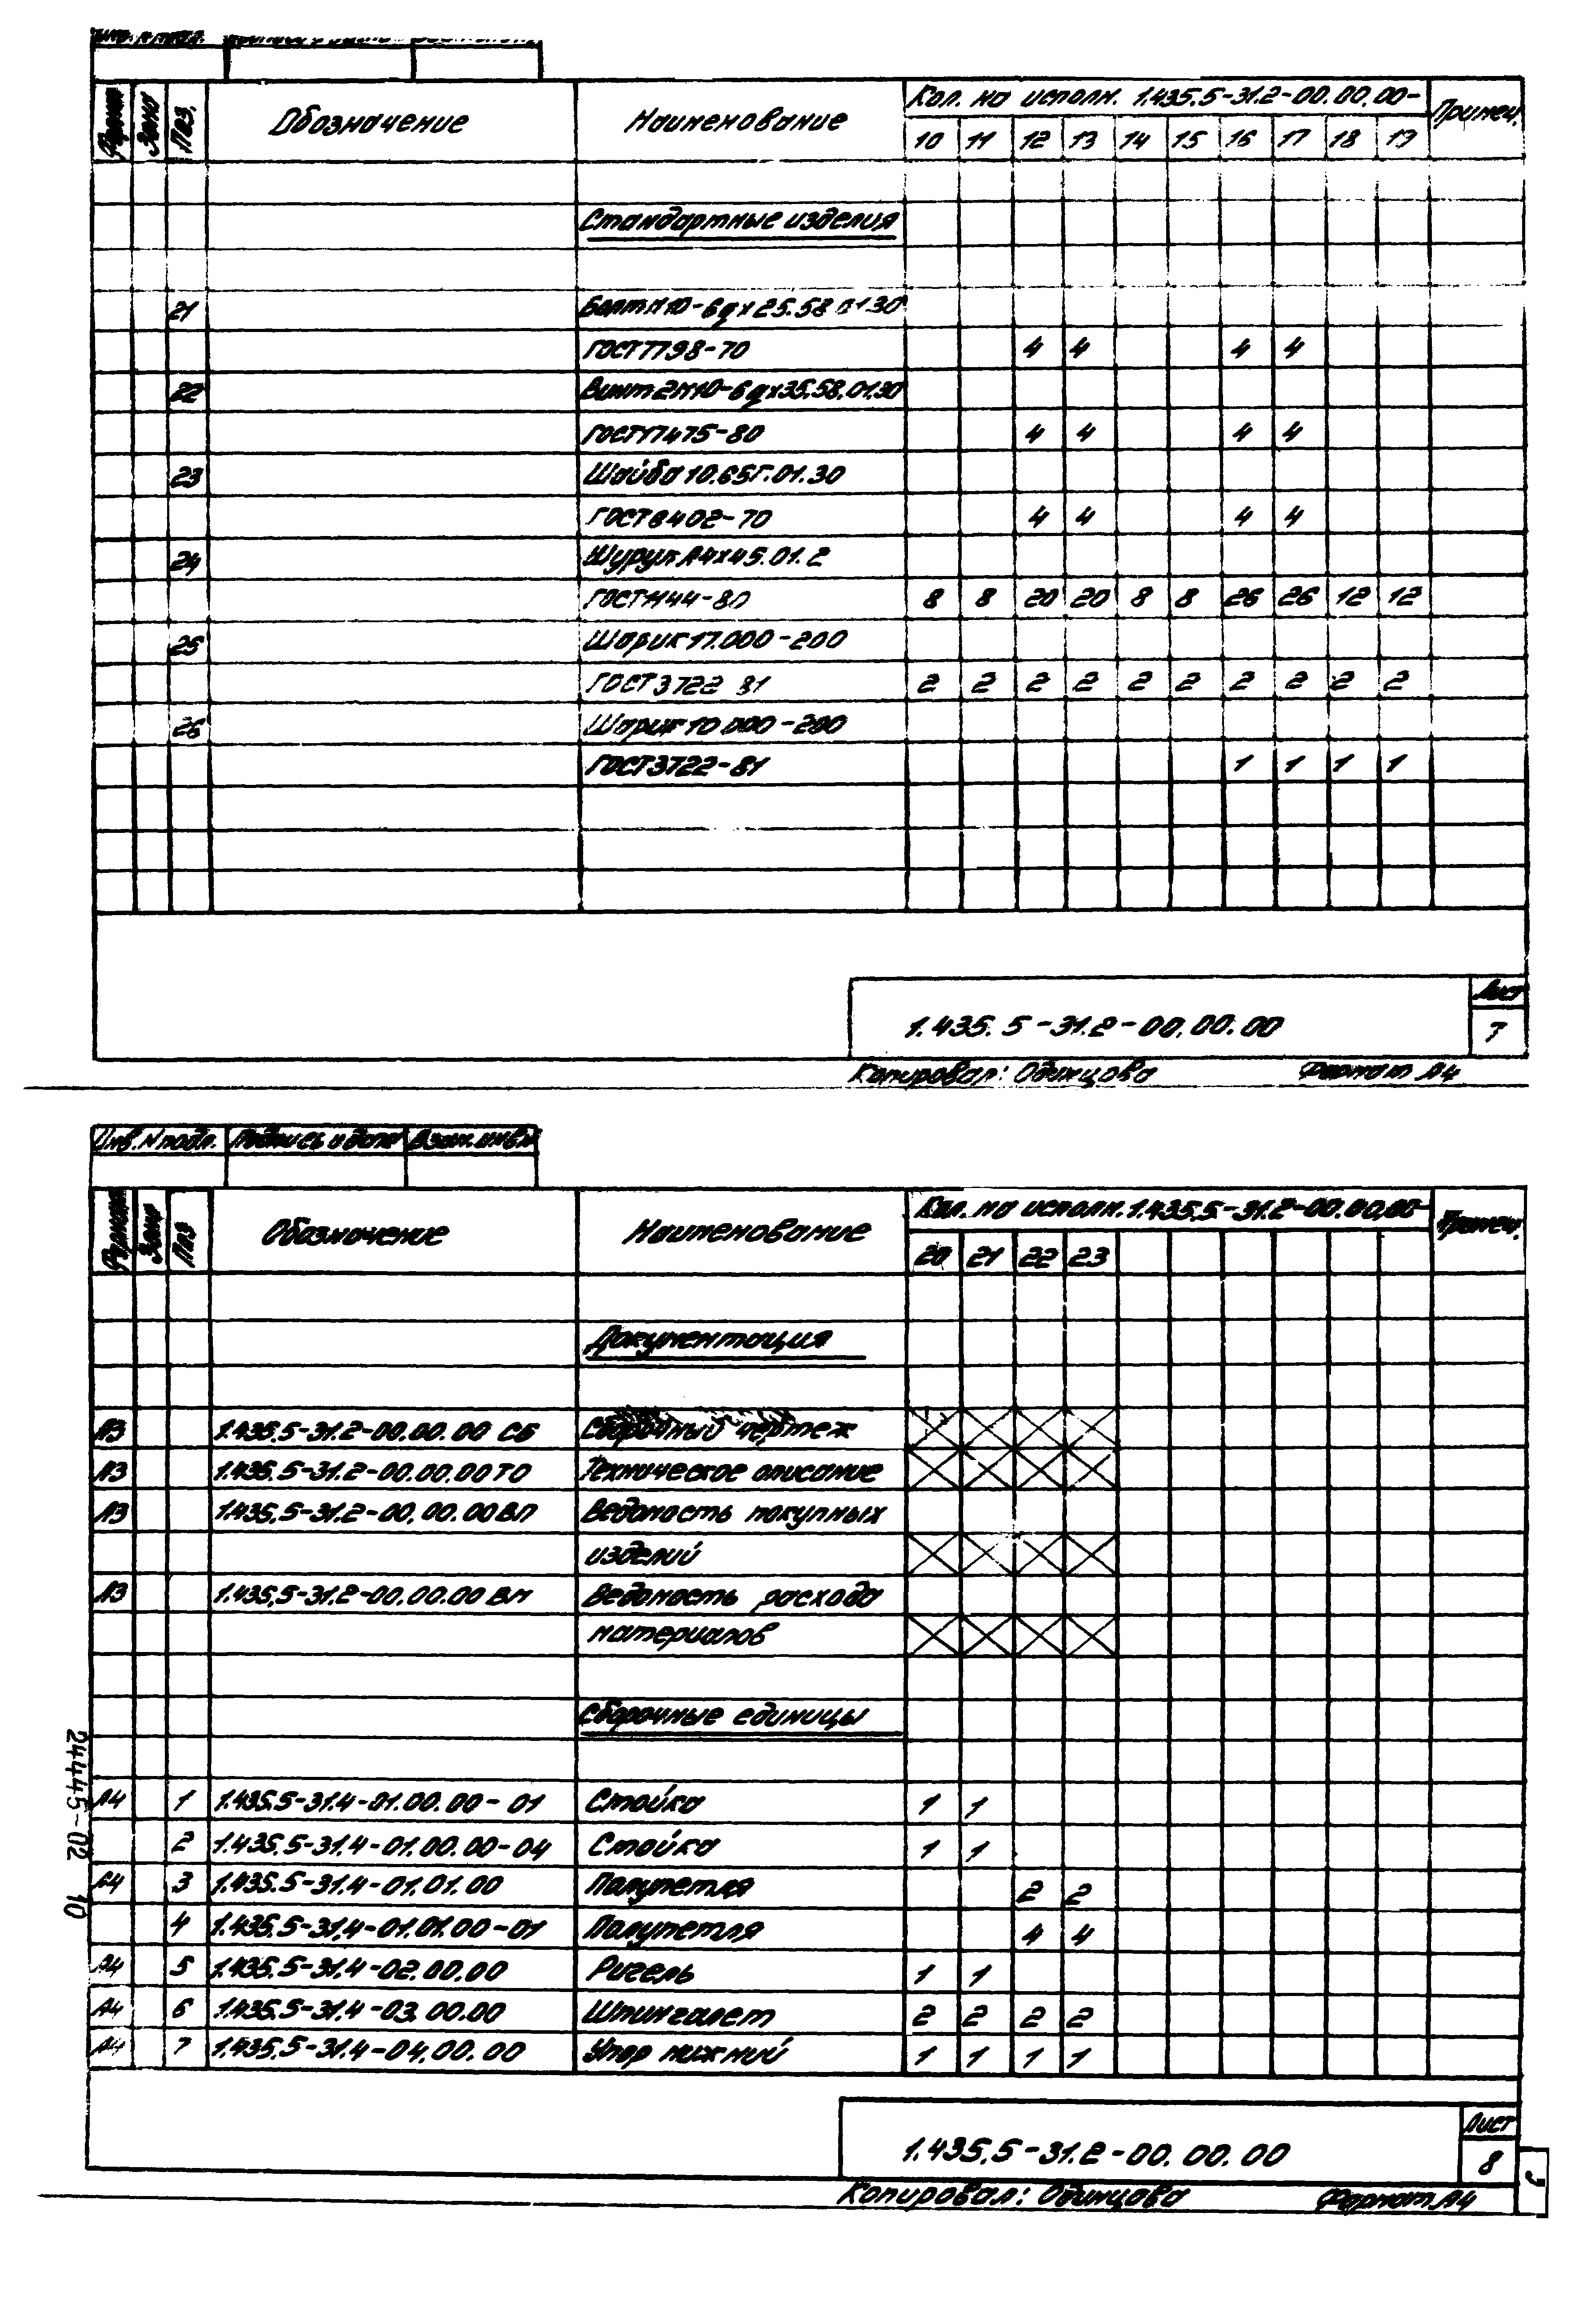 Инв. N подл. Подпись и дата Взам. инв. N
Формат Зона Поз. Обозначение Наименование Кол. на исполн. 1.435.5-31.2-00.00.00- Примеч.
10 11 12 13 14 15 16 17 18 19
Стандартные изделия
21 Болт М10-6gх25.58.01.30
ГОСТ 7798-70 4 4 4 4
22 Винт 2М10-6gх35.58.01.30
ГОСТ 17475-80 4 4 4 4
23 Шайба 10.65Г.01.30
ГОСТ 6402-70 4 4 4 4
24 Шуруп А4х45.01.2
ГОСТ 1144-80 8 8 20 20 8 8 26 26 12 12
25 Шарик 17.000-200
ГОСТ 3722 81 2 2 2 2 2 2 2 2 2 2
26 Шарик 10.000-200
ГОСТ 3722-81 1 1 1 1
1.435.5-31.2-00.00.00
Лист
7
Копировал: Одинцова Формат А4
Инв. N подл. Подпись и дата Взам. инв. N
Формат Зона Поз Обозначение Наименование Кол. на исполн. 1.435.5-31.2-00.00.00- Примеч.
20 21 22 23
Документация
А3 1.435.5-31.2-00.00.00 СБ Сборочный чертеж
А3 1.435.5-31.2-00.00.00 ТО Техническое описание
А3 1.435.5-31.2-00.00.00 ВП Ведомость покупных
изделий
А3 1.435.5-31.2-00.00.00 ВМ Ведомость расхода
материалов
Сборочные единицы
А4 1 1.435.5-31.4-01.00.00-01 Стойка 1 1
2 1.435.5-31.4-01.00.00-04 Стойка 1 1
А4 3 1.435.5-31.4-01.01.00 Полупетля 2 2
4 1.435.5-31.4-01.01.00-01 Полупетля 4 4
А4 5 1.435.5-31.4-02.00.00 Ригель 1 1
А4 6 1.435.5-31.4-03.00.00 Шпингалет 2 2 2 2
А4 7 1.435.5-31.4-04.00.00 Упор нижний 1 1 1 1
24445-02 10
1.435.5-31.2-00.00.00
Лист
8
Копировал: Одинцова Формат А4